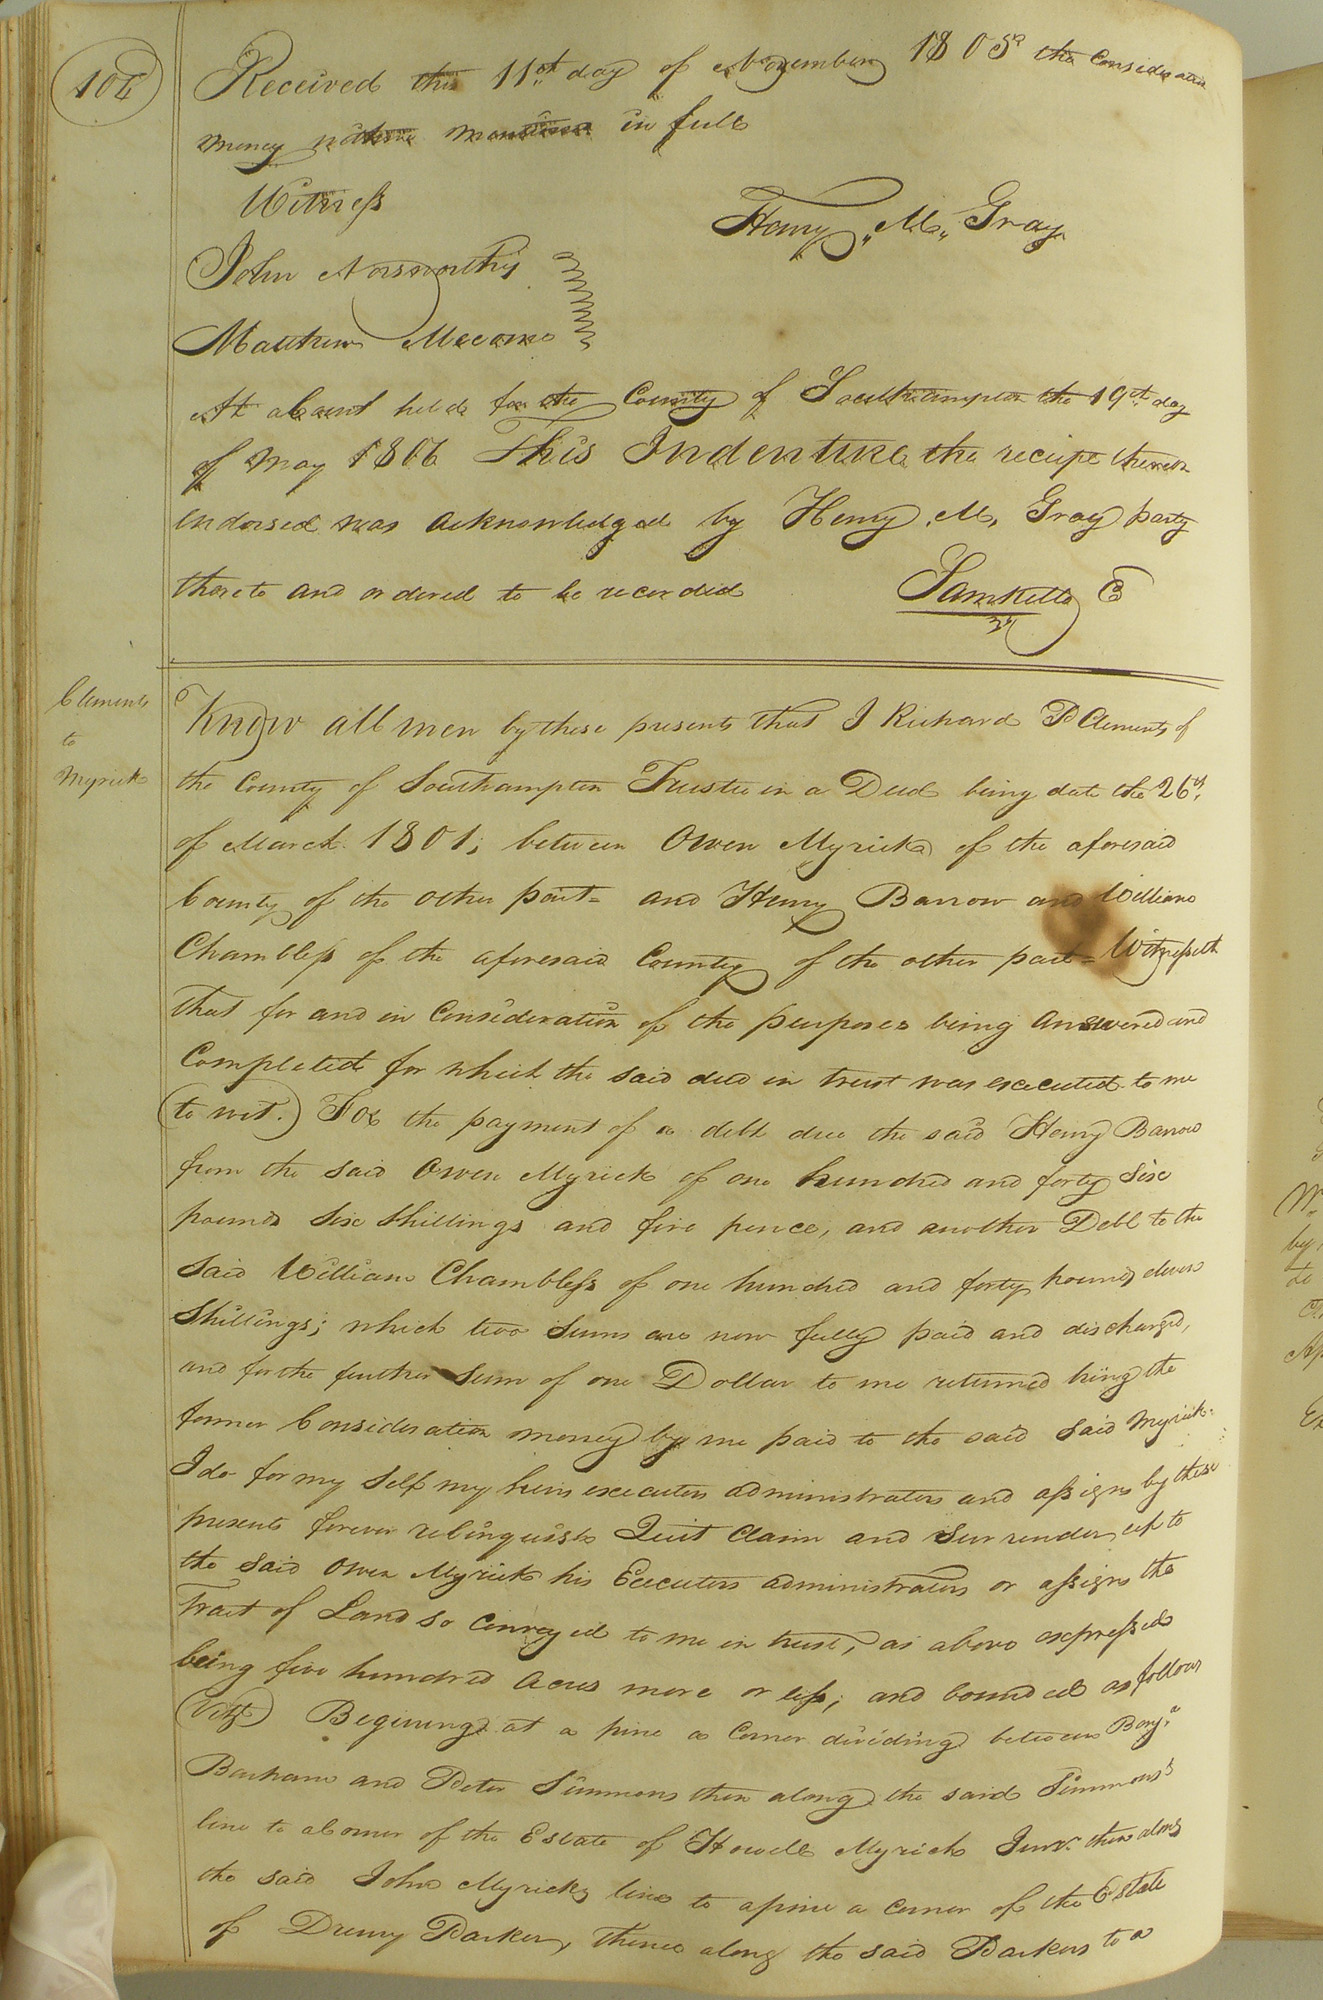 104
Received this 11st day of November 1805 the Consideration
money within mentioned in full
Witness
Henry "M" Gray
John Norsworthy
Matthew Mecome
At a Court held for the County of Southampton the 19st day
of May 1806 This Indenture the reciept thereon
endorsed was acknowledged by Henry, M, Gray party
thereto and ordered to be recorded
Sam Kello C
Clements
to
Myrick
Know all men by these presents that I Richard P Clements of
the County of Southampton Trustee in a Deed being date the 26th,
of March 1801; between Owen Myrick of the aforesaid
County of the other part= and Henry Barrow and William
Chambless of the aforesaid County of the other part= Witnesseth
that for and in Consideration of the purposes being answered and
Completed for which the said deed in trust was executed to me
(to wit.) For the payment of a debt due the said Henry Barrow
from the said Owen Myrick of one hundred and forty Six
pounds Six Shillings and five pence, and another Debt to the
said William Chambless of one hundred and forty pounds eleven
Shillings; which two Sums are now fully paid and discharged,
and for the further Sum of one Dollar to me returned being the
former Consideration money by me paid to the said Said Myrick.
I do for my Self my heirs executors administrators and assigns by these
presents forever relinquish Quit Claim and Surrender up to
the said Owen Myrick his Executors administrators or assigns the
Tract of Land so Conveyed to me in trust, as above expressed
being five hundred Acres more or less; and bounded as follows
(Vitz) Begining at a pine a Corner dividing between Benj.a
Barham and Peter Simmons then along the said Simmons's
line to a Corner of the Estate of Howell Myrick Junr. then along
the said John Myricks line to a pine a Corner of the Estate
of Drewry Parker, thence along the said Parkers to a